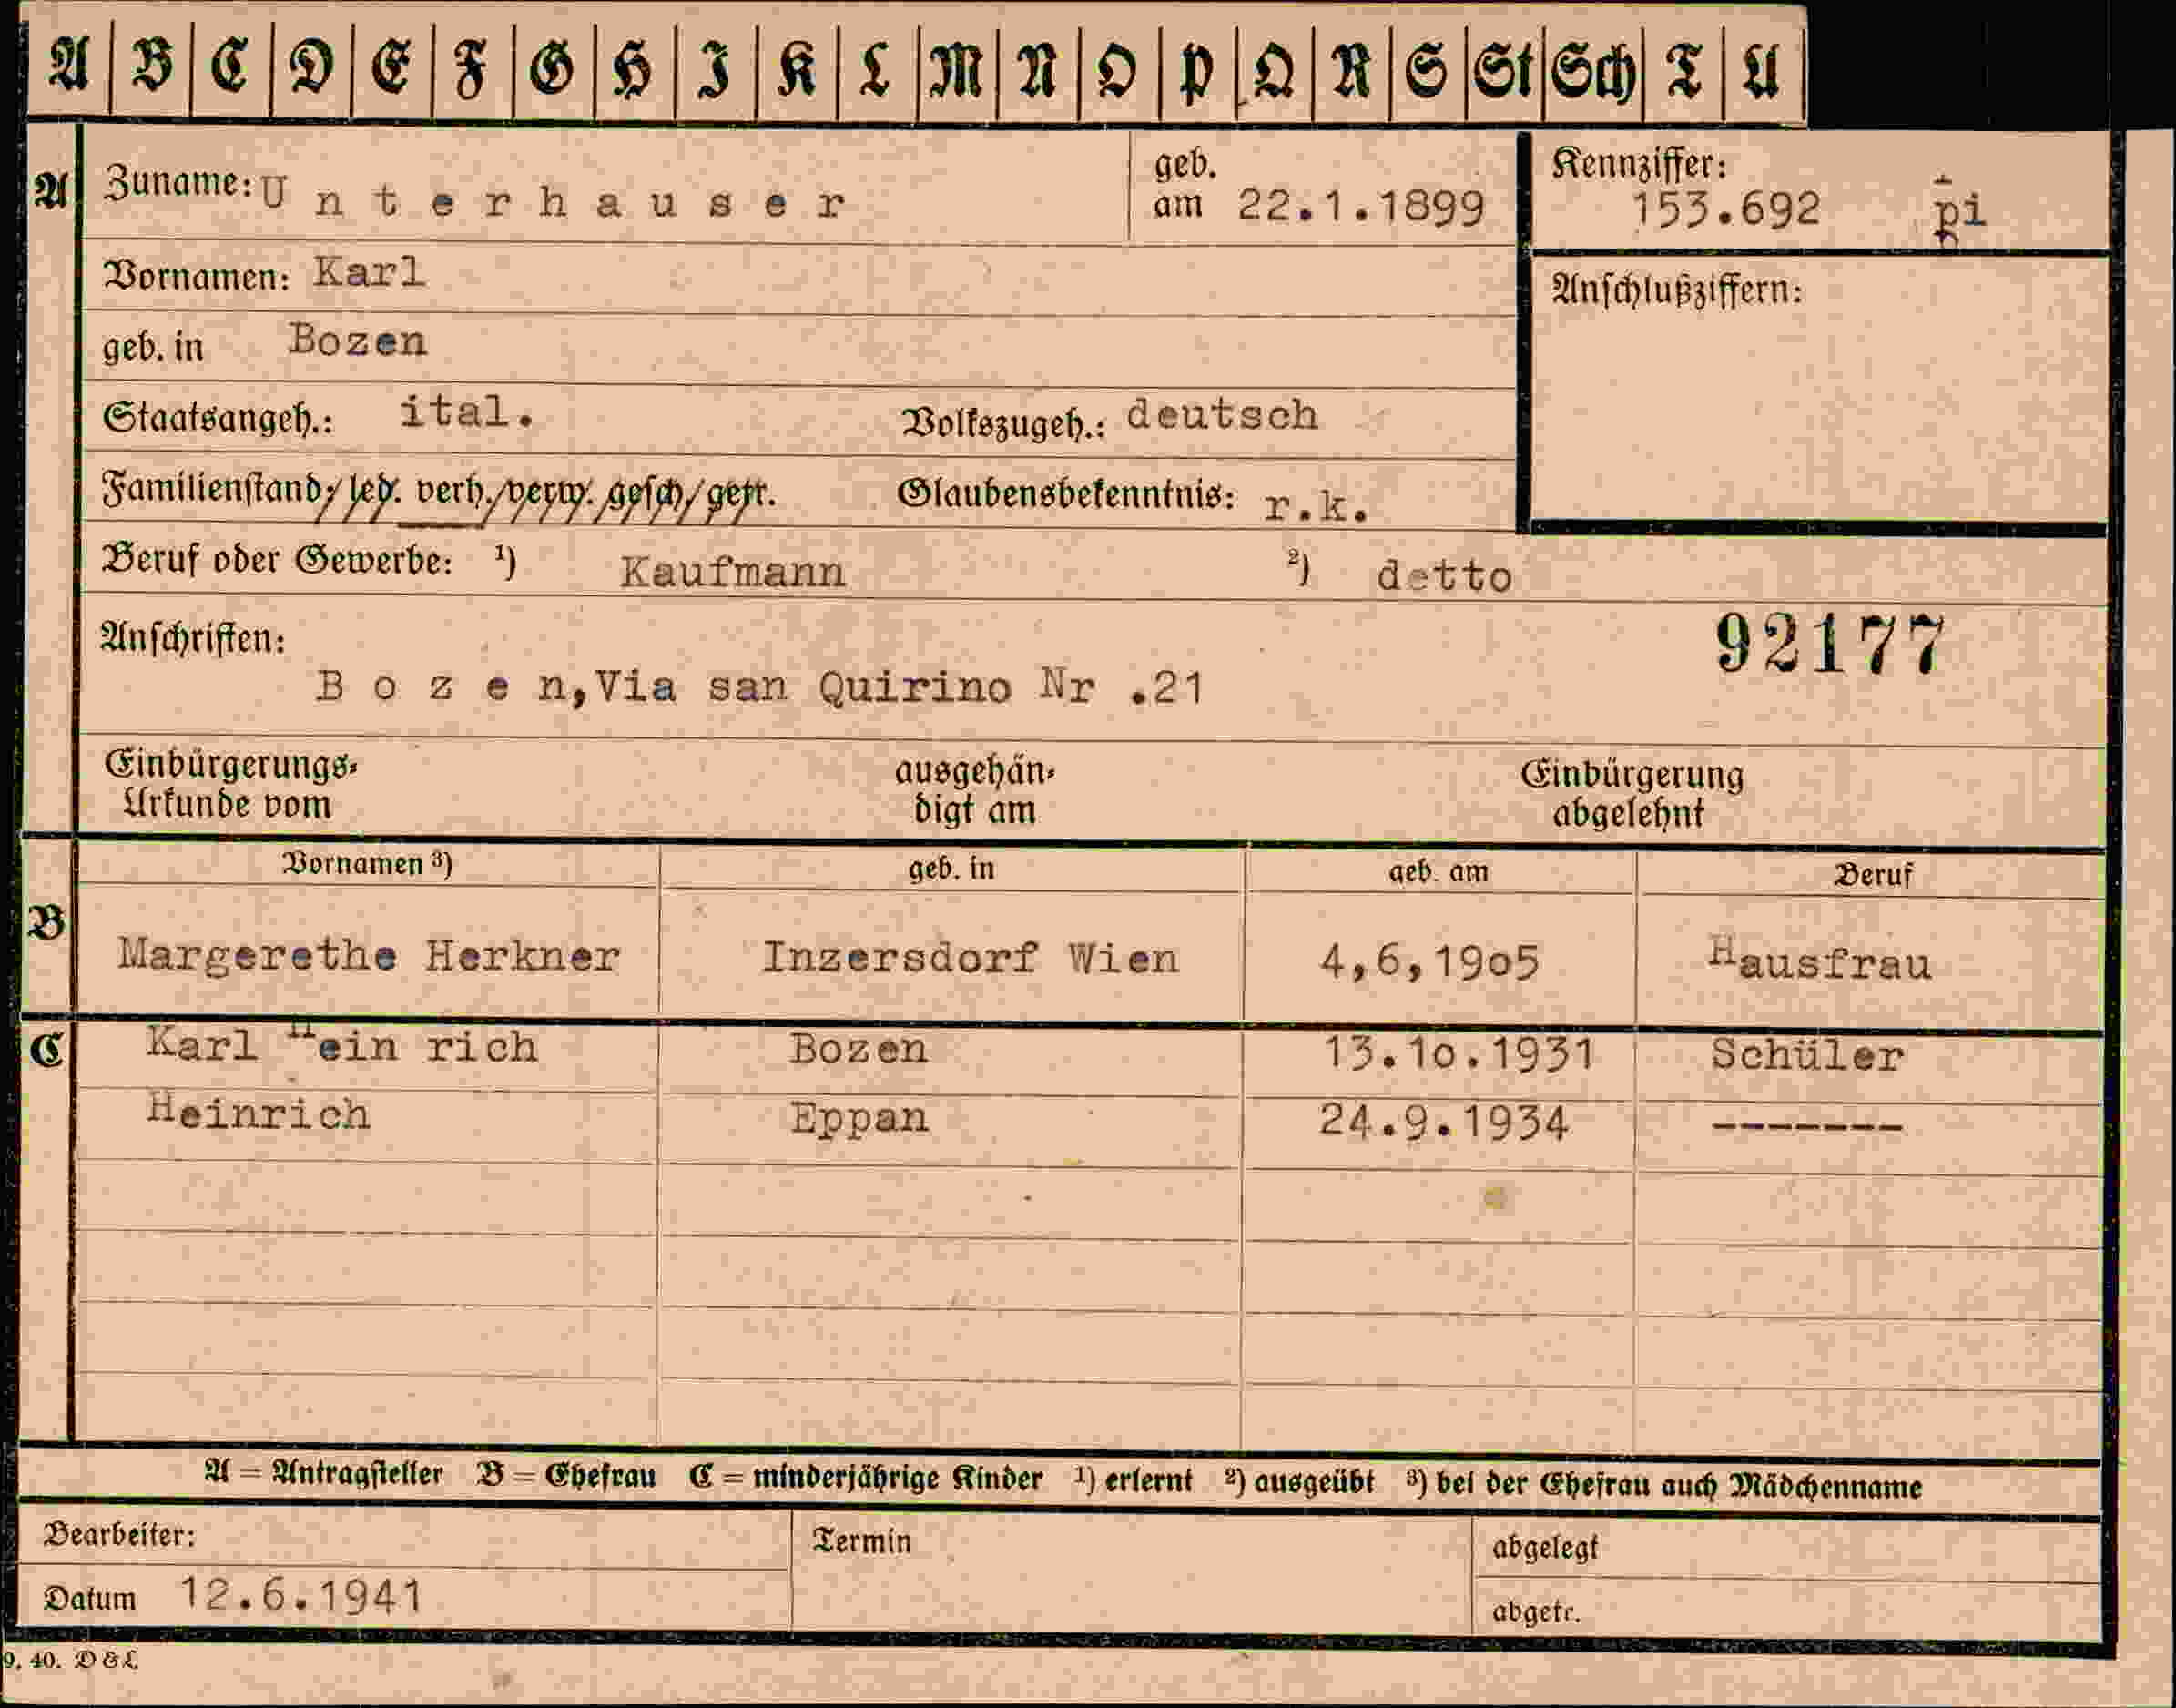 A B C D E F G H I K L M N O P Q R S St Sch T U
A Zuname: U n t e r h a u s e r geb. am 22.1.1899 Kennziffer: 153.692 pi
Vornamen: Karl Anschlußziffern:
geb. in Bozen
Staatsangeh.: ital. Volkszugeh.: deutsch
Familienstand: led. verh. verw. gesch. getr. Glaubensbekenntnis: r.k.
Beruf oder Gewerbe: ¹) Kaufmann ²) detto
Anschriften: 92177
B o z e n,Via san Quirino Nr .21
Einbürgerungs- ausgehän- Einbürgerung
Urkunde vom digt am abgelehnt
Vornamen ³) geb. in geb. am Beruf
B Margerethe Herkner Inzersdorf Wien 4,6,19o5 Hausfrau
C Karl Hein rich Bozen 13.1o.1931 Schüler
Heinrich Eppan 24.9.1934 -------
A = Antragsteller B = Ehefrau C = minderjährige Kinder ¹) erlernt ²) ausgeübt ³) bei der Ehefrau auch Mädchenname
Bearbeiter: Termin abgelegt
Datum 12.6.1941 abgetr.
9. 40. D & L